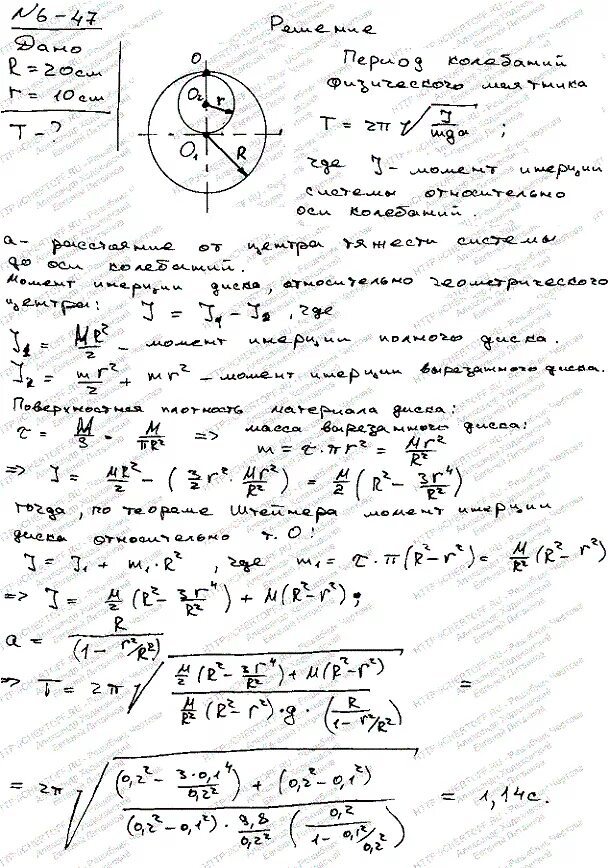 N6-47
Решение
Дано
R = 20см
r = 10см
T - ?
O
O₂
r
O₁
R
Период колебаний
физического маятника
T = 2π√(J/mga) ;
где J - момент инерции
системы относительно
оси колебаний.
a - расстояние от центра тяжести системы
до оси колебаний.
Момент инерции диска, относительно геометрического
центра: J = J₁ - J₂, где
J₁ = MR²/2 - момент инерции полного диска.
J₂ = mr²/2 + mr² - момент инерции вырезанного диска.
Поверхностная плотность материала диска:
τ = M/S = M/πR² => масса вырезанного диска:
m = τ·πr² = Mr²/R²
=> J = MR²/2 - (3/2 r² · Mr²/R²) = M/2 (R² - 3r⁴/R²)
тогда, по теореме Штейнера момент инерции
диска относительно т. О:
J = J₁ + m₁·R², где m₁ = τ·π(R²-r²) = M/R² (R²-r²)
=> J = M/2 (R² - 3r⁴/R²) + M(R²-r²);
a = R/(1 - r²/R²)
=> T = 2π √((M/2 (R² - 3r⁴/R²) + M(R²-r²))/(M/R² (R²-r²)·g·(R/(1-r²/R²)))) =
= 2π √(((0,2² - 3·0,1⁴/0,2²) + (0,2²-0,1²))/((0,2²-0,1²)·9,8/0,2² (0,2/(1-0,1²/0,2²)))) = 1,14с.